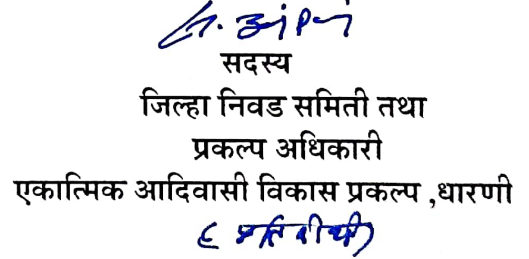 सदस्य
जिल्हा निवड समिती तथा
प्रकल्प अधिकारी
एकात्मिक आदिवासी विकास प्रकल्प ,धारणी